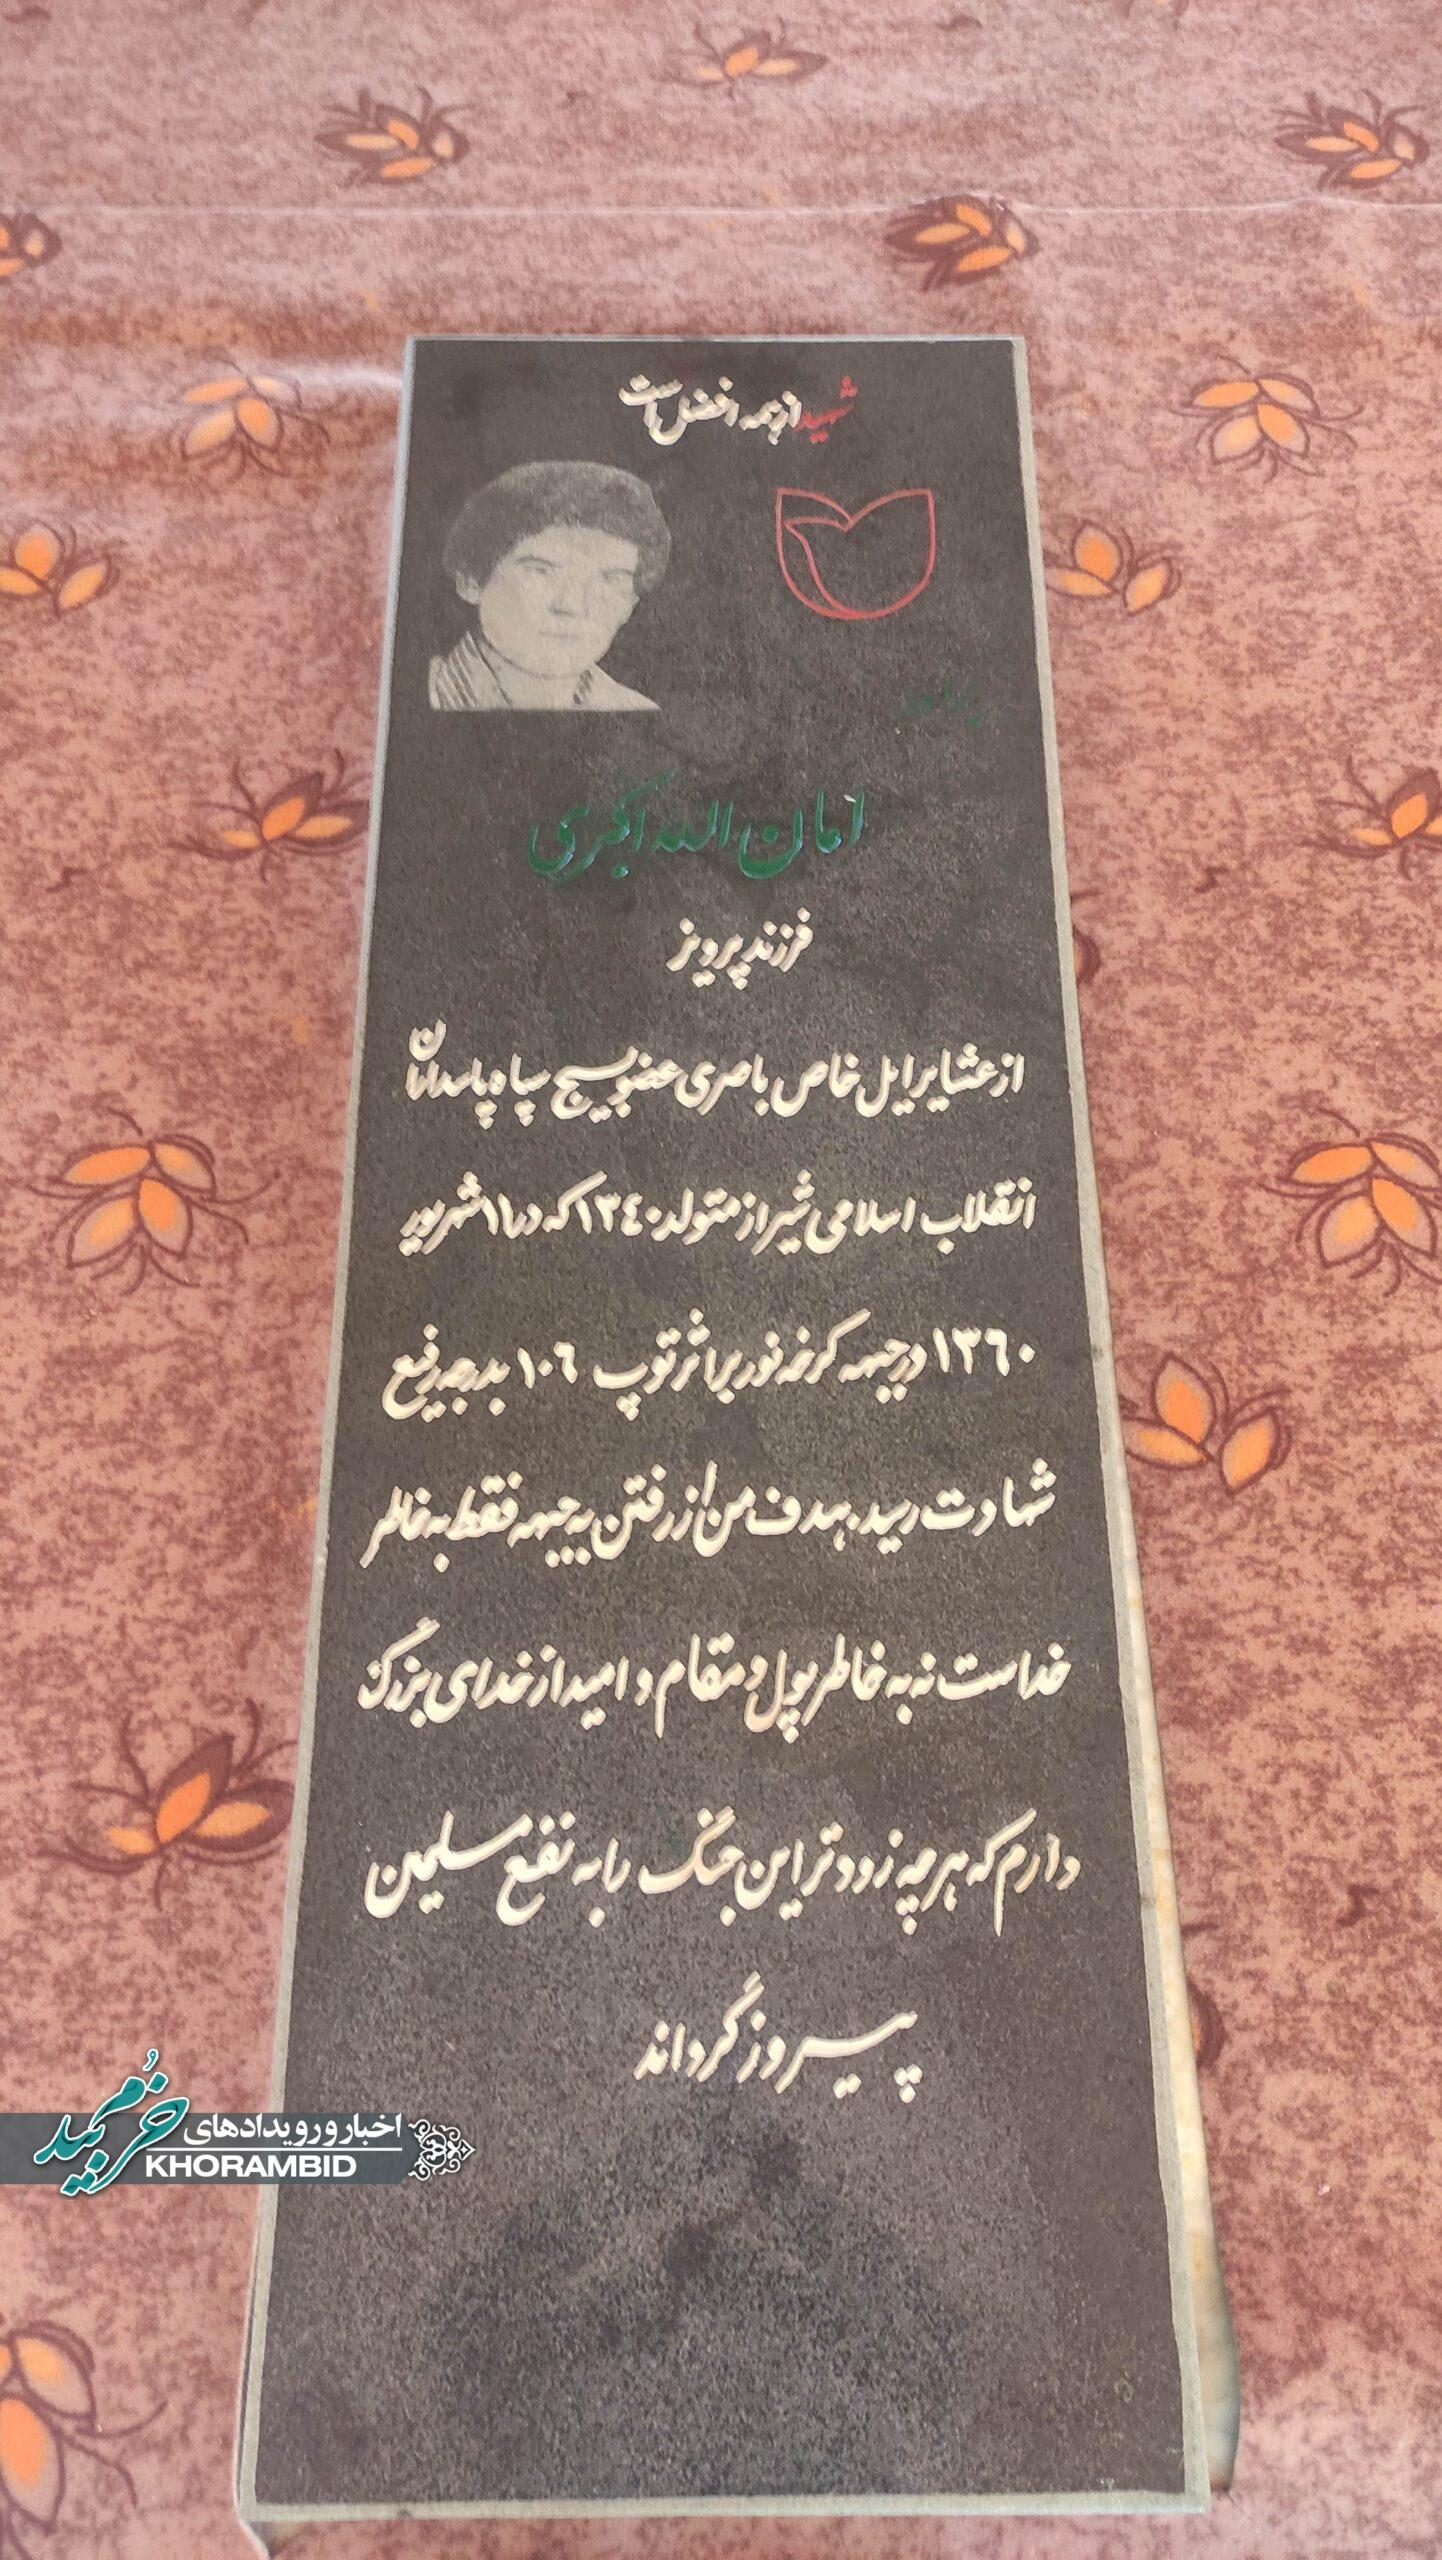 شهید از همه افضل است
برادر
امان الله اکبری
فرزند پرویز
از عشایر ایل خاص باصری عضو بسیج سپاه پاسداران
انقلاب اسلامی شیراز متولد ١٣٤٠ که در ١١ شهریور
١٣٦٠ در جبهه کرخه نور بر اثر توپ ١٠٦ بدرجه رفیع
شهادت رسید. هدف من از رفتن به جبهه فقط به خاطر
خداست نه به خاطر پول و مقام و امید از خدای بزرگ
دارم که هر چه زودتر این جنگ را به نفع مسلمین
پیروز گرداند
اخبار و رویدادهای
خرمبید
KHORAMBID